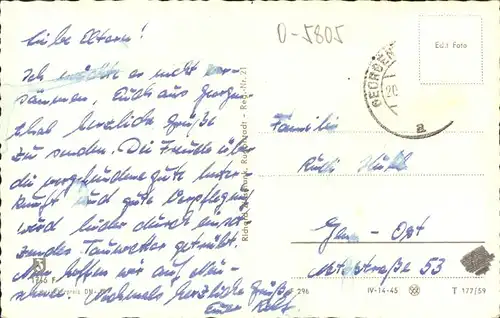 Liebe Eltern!
Ich möchte es nicht ver-
säumen, Euch aus Georgen-
thal herzliche Grüße
zu senden. Die Freude über
die vorgefundene gute Unter-
kunft und gute Verpflegung
wird leider durch einset-
zendes Tauwetter getrübt.
Nun hoffen wir auf Neu-
schnee. Nochmals herzliche Grüße
Euer Rolf
D-5805
Echt Foto
GEORGEN
20
a
Familie
Rudi
Gera - Ost
straße 53
Rudolstadt - Reg.-Nr. 21
296
IV-14-45
T 177/59